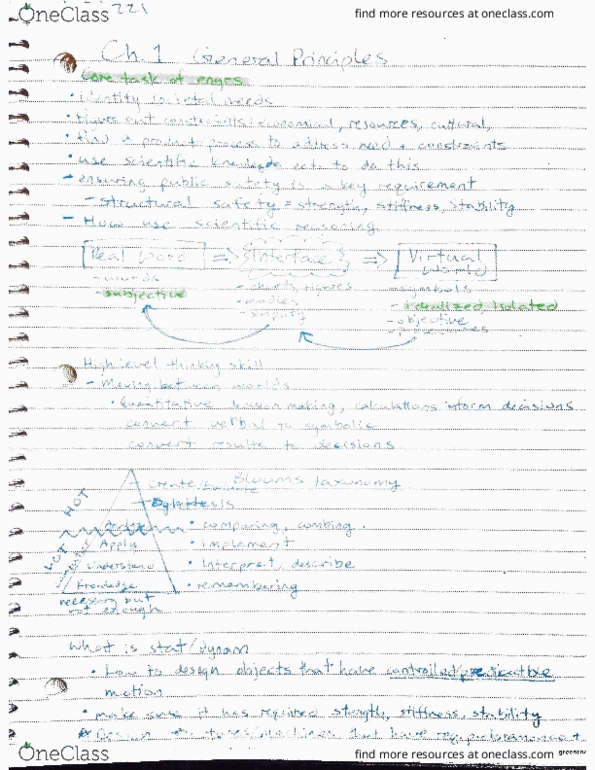 OneClass
find more resources at oneclass.com
221
Ch. 1 General Principles
Core task of enges
• identity societal needs
• Figure out constraints: economical, resources, cultural,
• find a product/process to address need + constraints
• use scientific knowledge ect to do this
- ensuring public safety is a key requirement
- structural safety = strength, stiffness, stability
- How use scientific reasoning
Real Word => Interface => Virtual World
- words
- subjective
- charts, figures
- models
- symbols
- idealized, isolated
- objective
High level thinking skill
- Moving between worlds
• Quantitative making, calculations inform decisions
convert verbal to symbolic
convert results to decisions
Create Blooms taxonomy
HOT
LOT
• comparing,
Apply • implement
Understand • Interpret, describe
Knowledge • remembering
necessary but not enough
What is stat/dynam
• how to design objects that have controlled/predicative
motion
• make sure it has required strength, stiffness, stability
that have
OneClass
find more resources at oneclass.com